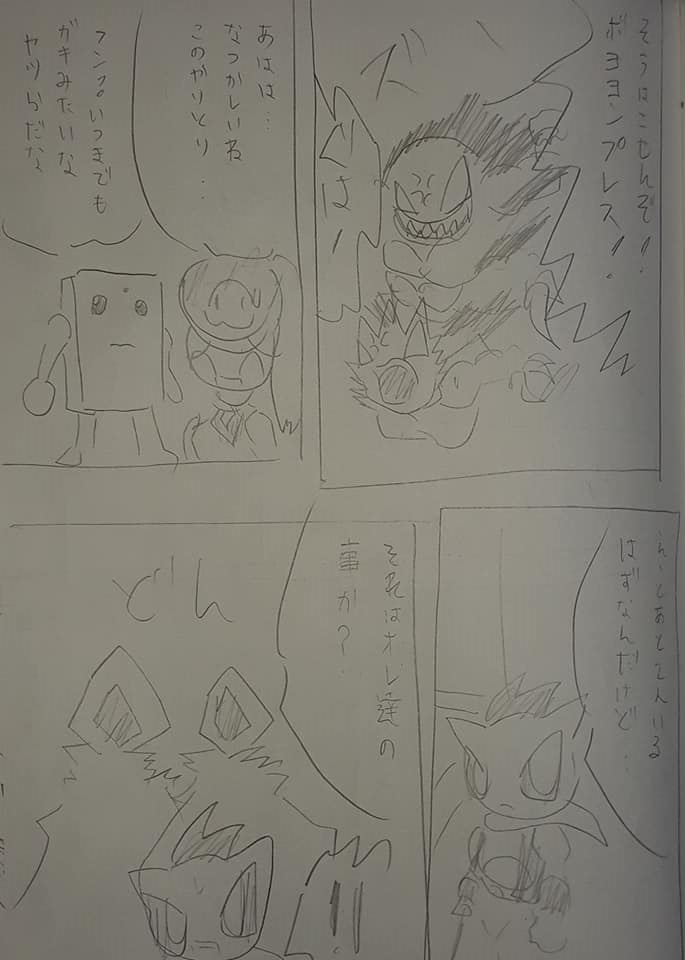 そうはこもんぞ!!
ボヨヨンプレス!!
ズ
ぐは!
あはは…
なつかしいね
このやりとり…
フンッ。いつまでも
ガキみたいな
ヤツらだな
えーとあと2人いる
はずなんだけど…
それはオレ達の
事か?
どん
!!